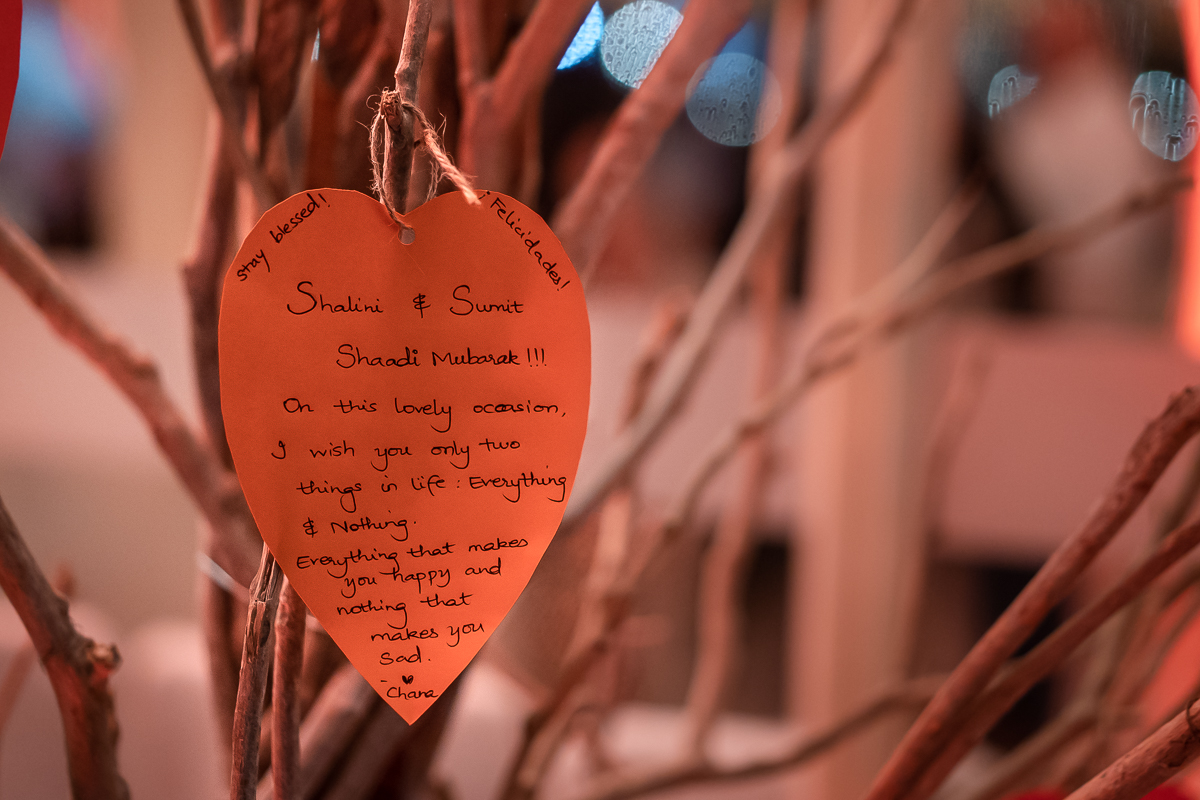 Stay blessed!
¡Felicidades!
Shalini & Sumit
Shaadi Mubarak!!!
On this lovely occasion,
I wish you only two
things in life : Everything
& Nothing.
Everything that makes
you happy and
nothing that
makes you
sad.
- Chana